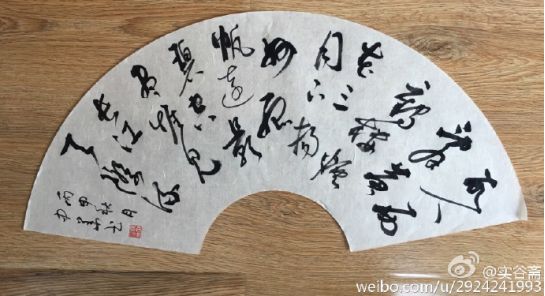 故人西辞
黄鹤楼烟
花三
月下扬
州孤
帆远影
碧空
尽唯见
长江
天际流
丙申秋月
@实谷斋
weibo.com/u/2924241993